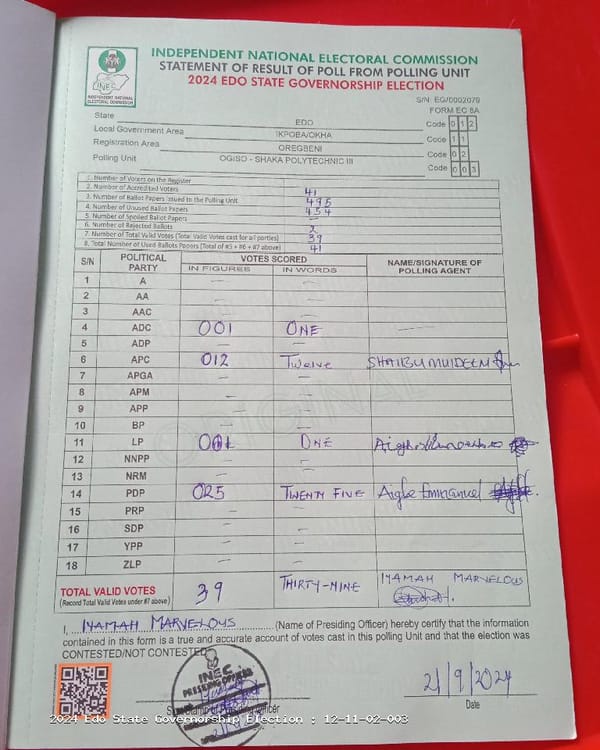 INDEPENDENT NATIONAL ELECTORAL COMMISSION
STATEMENT OF RESULT OF POLL FROM POLLING UNIT
2024 EDO STATE GOVERNORSHIP ELECTION
INEC
INDEPENDENT NATIONAL
ELECTORAL COMMISSION
S/N EG/0002079
FORM EC 8A
State EDO Code 0 1 2
Local Government Area IKPOBA/OKHA Code 1 1
Registration Area OREGBENI Code 0 2
Polling Unit OGISO - SHAKA POLYTECHNIC III Code 0 0 3
1. Number of Voters on the Register
2. Number of Accredited Voters 41
3. Number of Ballot Papers Issued to the Polling Unit 495
4. Number of Unused Ballot Papers 454
5. Number of Spoiled Ballot Papers —
6. Number of Rejected Ballots 2
7. Number of Total Valid Votes (Total Valid Votes cast for all parties) 39
8. Total Number of Used Ballots Papers (Total of #5 + #6 + #7 above) 41
S/N POLITICAL PARTY VOTES SCORED NAME/SIGNATURE OF POLLING AGENT
IN FIGURES IN WORDS
1 A — —
2 AA — —
3 AAC — —
4 ADC 001 ONE —
5 ADP — —
6 APC 012 Twelve SHAIBU MUIDEEN
7 APGA — —
8 APM — —
9 APP — —
10 BP — —
11 LP 001 ONE
12 NNPP — —
13 NRM — —
14 PDP 025 TWENTY FIVE Aigbe Emmanuel
15 PRP — —
16 SDP — —
17 YPP — —
18 ZLP — —
TOTAL VALID VOTES 39 THIRTY-NINE IYAMAH MARVELOUS
(Record Total Valid Votes under #7 above)
I, IYAMAH MARVELOUS (Name of Presiding Officer) hereby certify that the information
contained in this form is a true and accurate account of votes cast in this polling Unit and that the election was
CONTESTED/NOT CONTESTED
INEC
PRESIDING OFFICER
21/9/2024
Date
2024 Edo State Governorship Election : 12-11-02-003